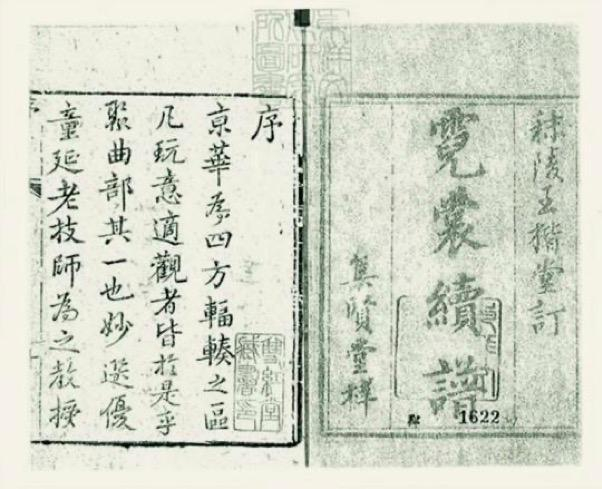 秣陵王楷堂訂
霓裳續譜
集賢堂梓
1622
序
京華為四方輻輳之區
凡玩意適觀者皆扵是乎
聚曲部其一也妙選優
童延老技師為之教授